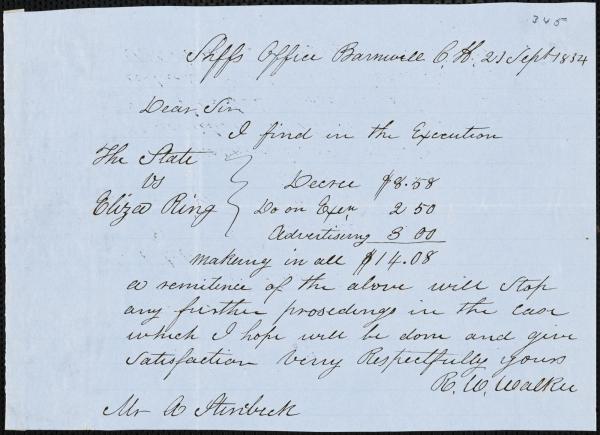 345
Shffs Office Barnwell C. H. 23 Sept 1854
Dear Sir
I find in the Execution
The State
vs
Eliza Ring
Decree $8.58
Do on Exen 2 50
Advertising 3 00
making in all $14.08
a remitence of the above will Stop
any further prosedings in the case
which I hope will be done and give
Satisfaction Verry Respectfully yours
R. W. Walker
Mr A